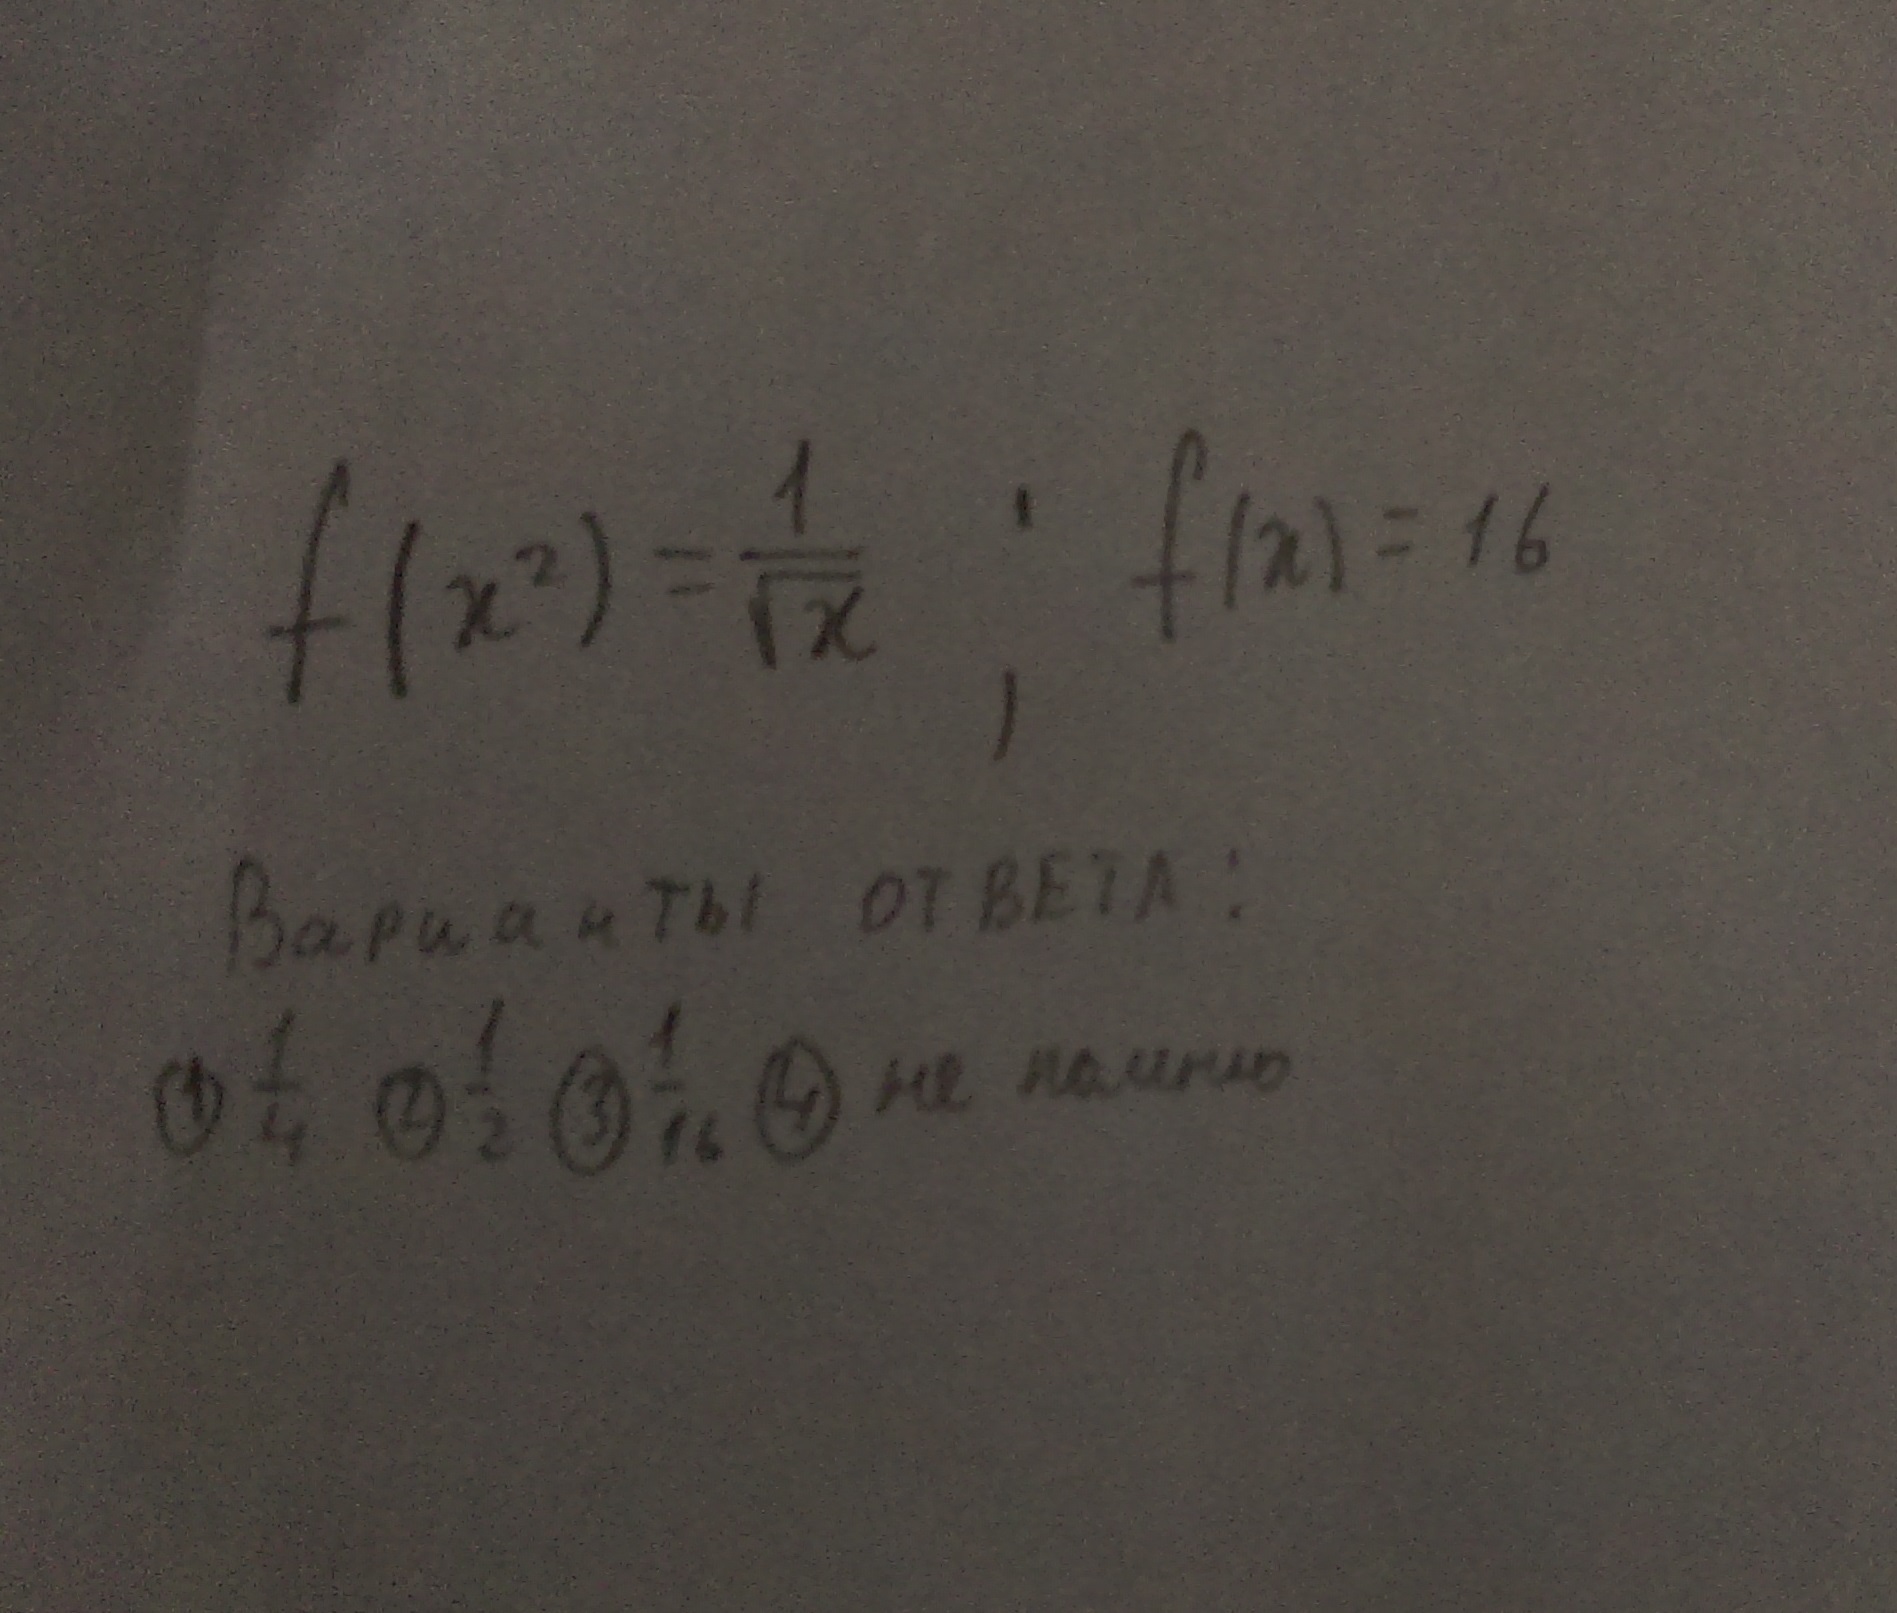 f(x²) = 1/√x ; f(x) = 16
Варианты ОТВЕТА:
① 1/4 ② 1/2 ③ 1/16 ④ не помню